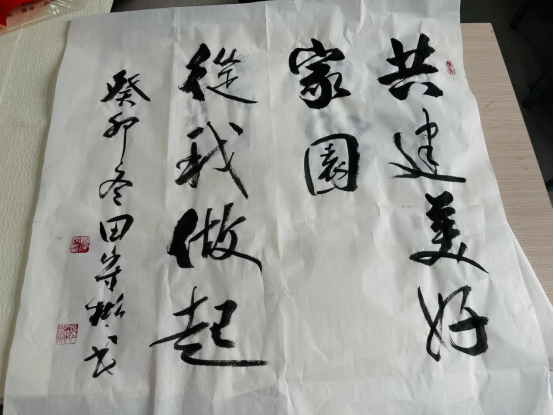 共建美好
家園
從我做起
癸卯冬田守彬书